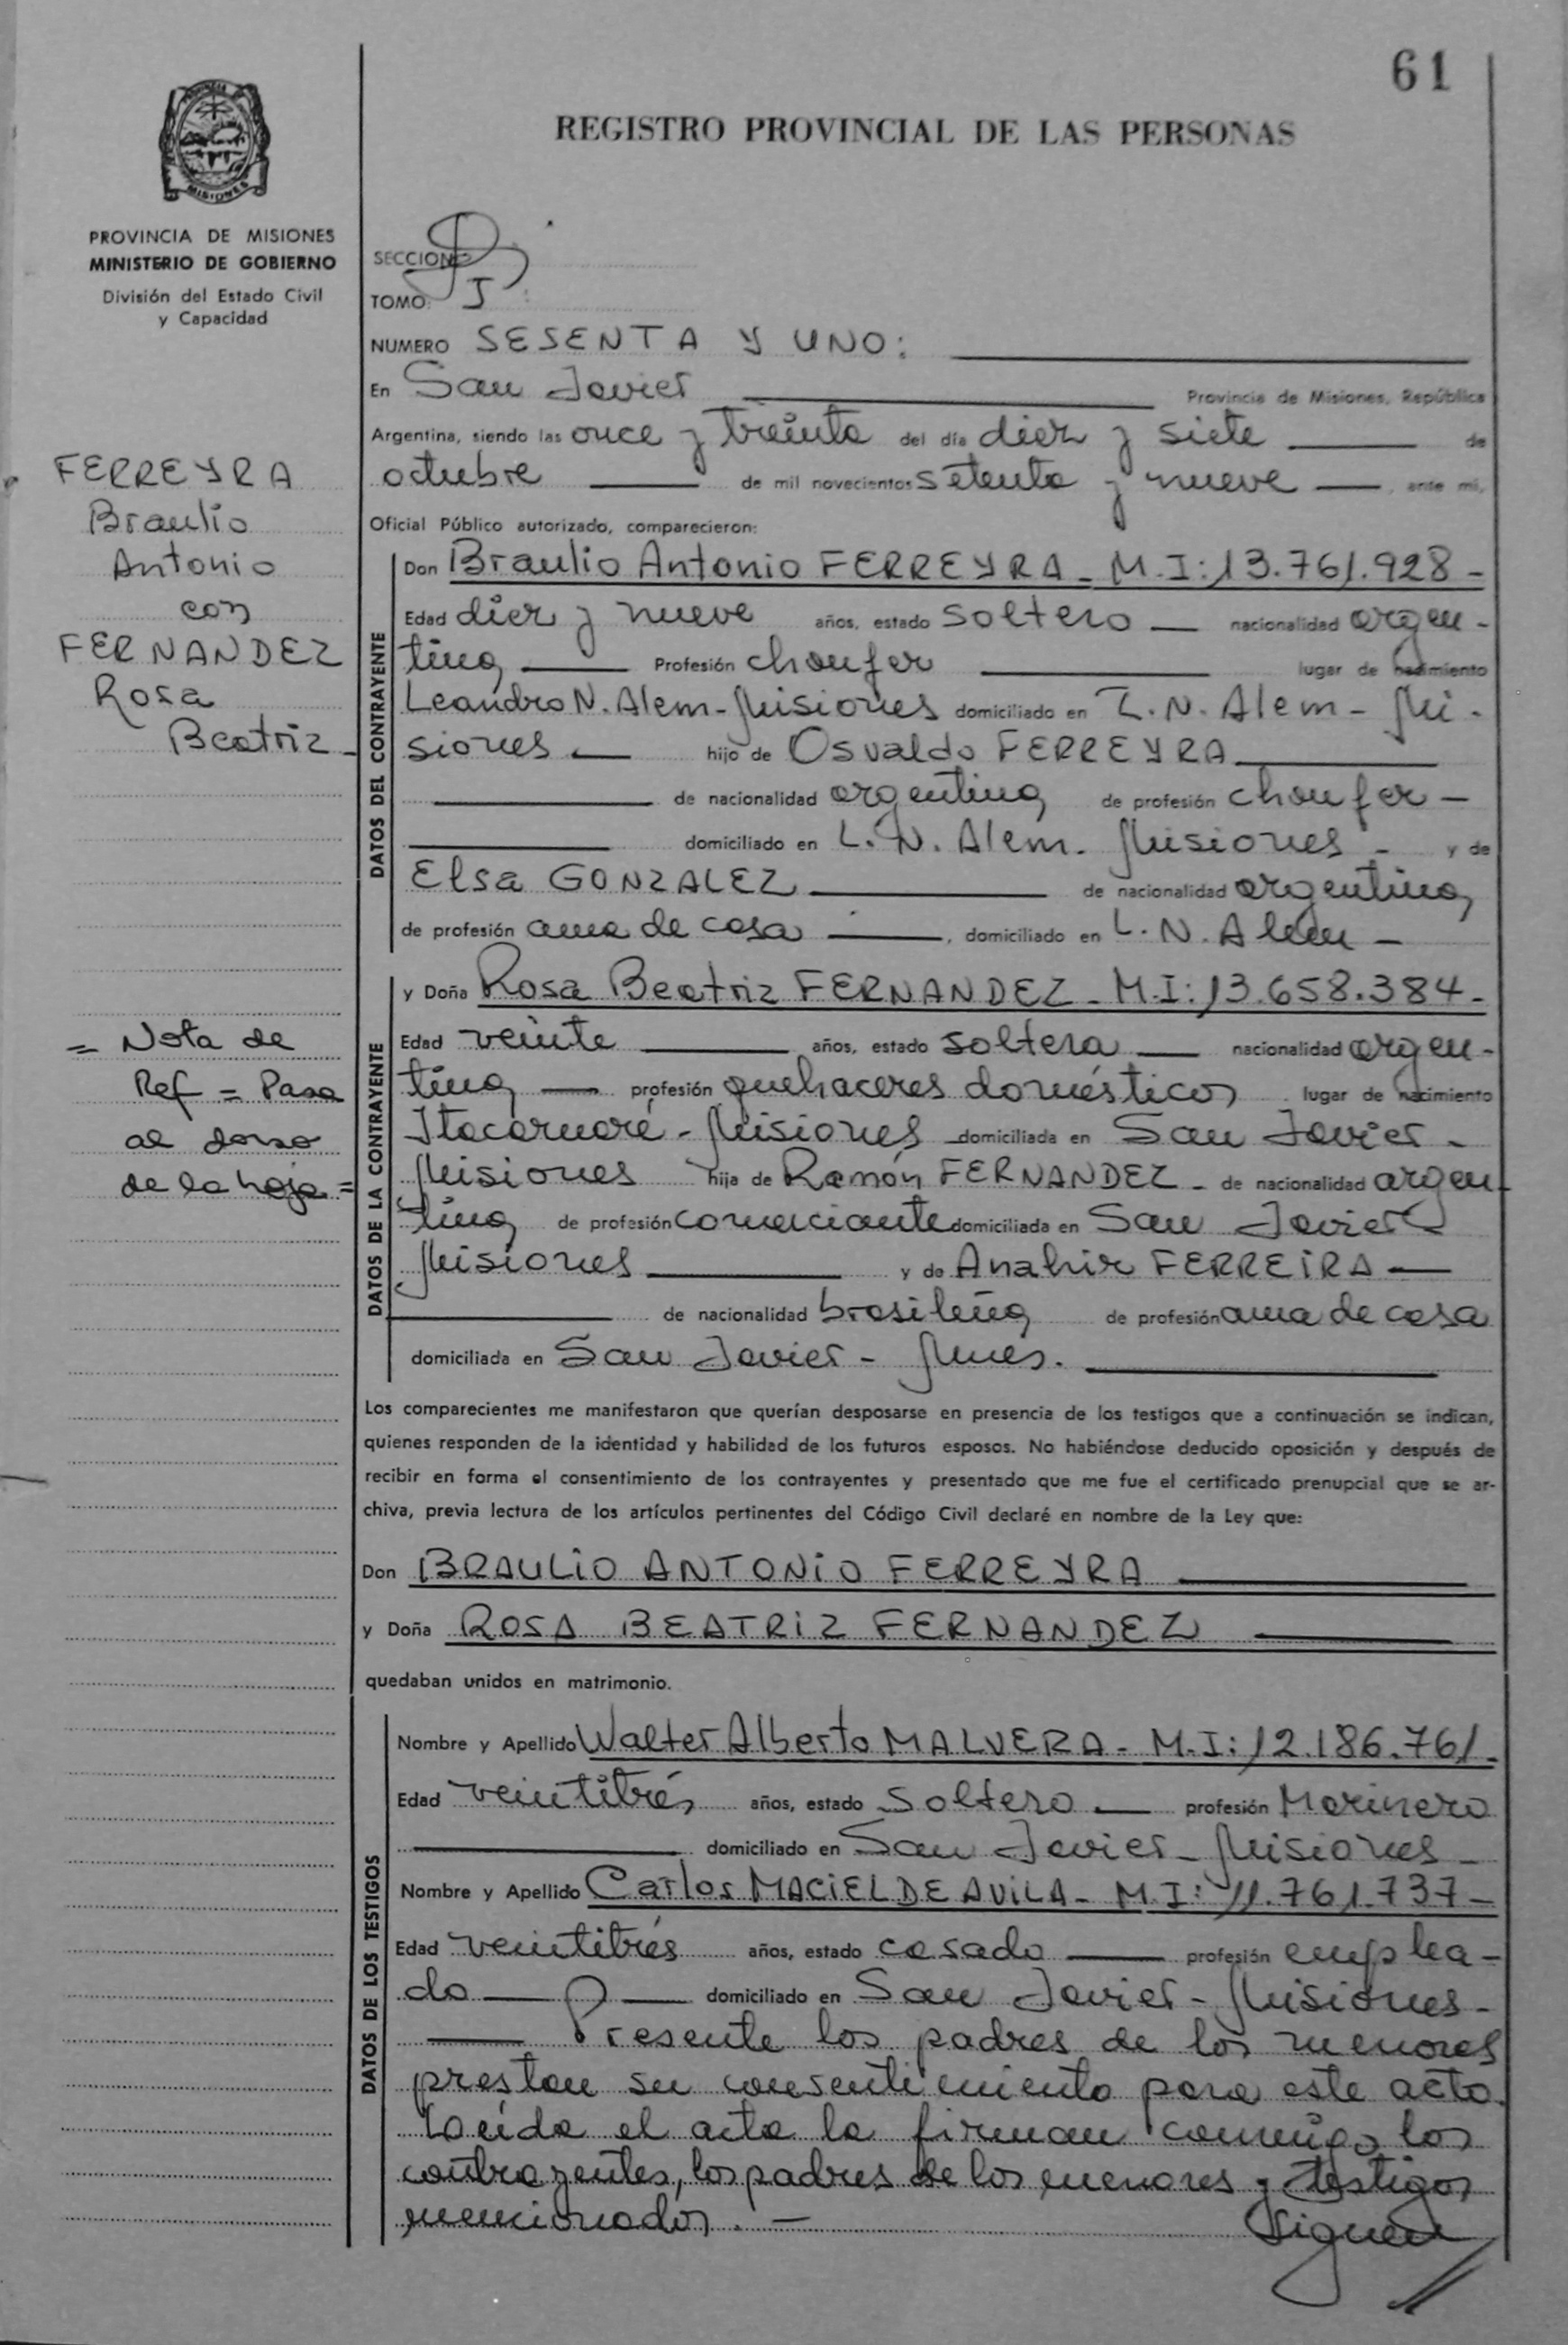 61
REGISTRO PROVINCIAL DE LAS PERSONAS
MISIONES
PROVINCIA DE MISIONES
MINISTERIO DE GOBIERNO
División del Estado Civil
y Capacidad
SECCION
TOMO: I
NUMERO SESENTA Y UNO:
En San Javier Provincia de Misiones, República
Argentina, siendo las once y treinta del día diez y siete de
octubre de mil novecientos setenta y nueve, ante mi,
Oficial Público autorizado, comparecieron:
FERREYRA
Braulio
Antonio
con
FERNANDEZ
Rosa
Beatriz -
DATOS DEL CONTRAYENTE
Don Braulio Antonio FERREYRA - M.I: 13.761.928 -
Edad diez y nueve años, estado soltero nacionalidad argen-
tina Profesión choufer lugar de nacimiento
Leandro N. Alem - Misiones domiciliado en L. N. Alem - Mi-
siones hijo de Osvaldo FERREYRA
de nacionalidad argentina de profesión choufer -
domiciliado en L. N. Alem - Misiones - y de
Elsa GONZALEZ de nacionalidad argentina,
de profesión ama de casa, domiciliado en L. N. Alem -
= Nota de
Ref = Pasa
al dorso
de la hoja =
DATOS DE LA CONTRAYENTE
y Doña Rosa Beatriz FERNANDEZ - M.I: 13.658.384 -
Edad veinte años, estado soltera nacionalidad argen-
tina profesión quehaceres domésticos lugar de nacimiento
Itacaruaré - Misiones domiciliada en San Javier -
Misiones hija de Ramón FERNANDEZ - de nacionalidad argen-
tina de profesión comerciante domiciliada en San Javier
Misiones y de Anahir FERREIRA
de nacionalidad brasileña de profesión ama de casa
domiciliada en San Javier - Mnes.
Los comparecientes me manifestaron que querían desposarse en presencia de los testigos que a continuación se indican,
quienes responden de la identidad y habilidad de los futuros esposos. No habiéndose deducido oposición y después de
recibir en forma el consentimiento de los contrayentes y presentado que me fue el certificado prenupcial que se ar-
chiva, previa lectura de los artículos pertinentes del Código Civil declaré en nombre de la Ley que:
Don BRAULIO ANTONIO FERREYRA
y Doña ROSA BEATRIZ FERNANDEZ
quedaban unidos en matrimonio.
DATOS DE LOS TESTIGOS
Nombre y Apellido Walter Alberto MALVERA - M.I: 12.186.761 -
Edad veintitrés años, estado soltero profesión Marinero
domiciliado en San Javier - Misiones -
Nombre y Apellido Carlos MACIEL DE AVILA - M.I: 11.761.737 -
Edad veintitrés años, estado casado profesión emplea-
do domiciliado en San Javier - Misiones -
Presente los padres de los menores
prestan su consentimiento para este acto.
Leída el acta la firman conmigo los
contrayentes, los padres de los menores y testigos
mencionados. -
Siguen